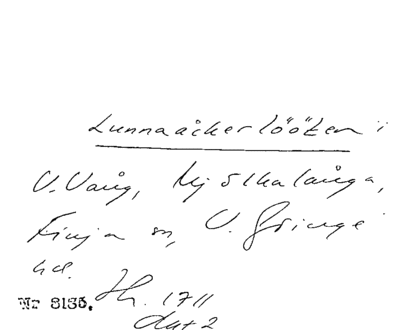 Lunnaåkerlööten i
V. Vång, Mjölkalånga,
Finja sn, V. Göinge
hd.
Nr 8135. Hs. 1711
Akt 2